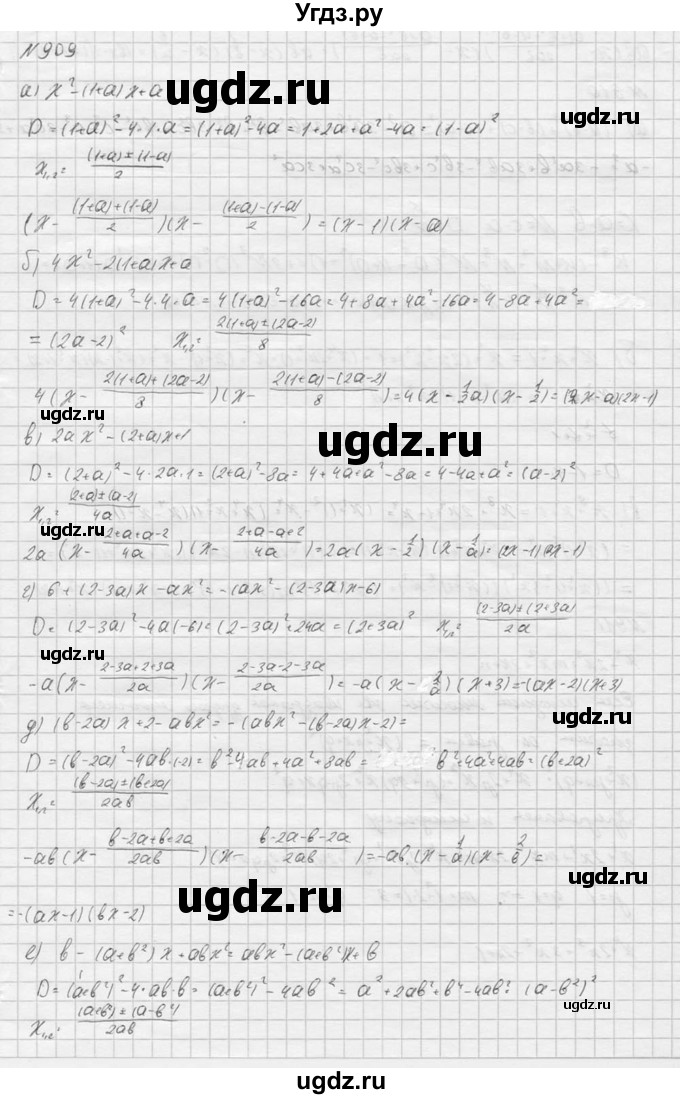 Угдз.ру
№909
а) x² - (1+a)x + a
ugdz.ru
ugdz.ru
D = (1+a)² - 4·1·a = (1+a)² - 4a = 1 + 2a + a² - 4a = (1-a)²
x₁,₂ = ((1+a) ± (1-a))/2
(x - ((1+a)+(1-a))/2)(x - ((1+a)-(1-a))/2) = (x-1)(x-a)
б) 4x² - 2(1+a)x + a
ugdz.ru
D = 4(1+a)² - 4·4·a = 4(1+a)² - 16a = 4 + 8a + 4a² - 16a = 4 - 8a + 4a² =
= (2a-2)² x₁,₂ = (2(1+a) ± (2a-2))/8
ugdz.ru
4(x - (2(1+a)+(2a-2))/8)(x - (2(1+a)-(2a-2))/8) = 4(x - 1/2 a)(x - 1/2) = (2x-a)(2x-1)
ugdz.ru
в) 2ax² - (2+a)x + 1
ugdz.ru
D = (2+a)² - 4·2a·1 = (2+a)² - 8a = 4 + 4a + a² - 8a = 4 - 4a + a² = (a-2)²
x₁,₂ = ((2+a) ± (a-2))/4a
ugdz.ru
2a(x - (2+a+a-2)/4a)(x - (2+a-a+2)/4a) = 2a(x - 1/2)(x - 1/a) =
г) 6 + (2-3a)x - ax² = -(ax² - (2-3a)x - 6)
D = (2-3a)² - 4a(-6) = (2-3a)² + 24a = (2+3a)² x₁,₂ = ((2-3a) ± (2+3a))/2a
ugdz.ru
-a(x - (2-3a+2+3a)/2a)(x - (2-3a-2-3a)/2a) = -a(x - /a)(x+3) = -(ax-2)(x+3)
д) (b-2a)x + 2 - abx² = -(abx² - (b-2a)x - 2) =
ugdz.ru
D = (b-2a)² - 4ab·(-2) = b² - 4ab + 4a² + 8ab = b² + 4a² + 4ab = (b+2a)²
x₁,₂ = ((b-2a) ± (b+2a))/2ab
-ab(x - (b-2a+b+2a)/2ab)(x - (b-2a-b-2a)/2ab) = -ab(x - 1/a)(x - 2/b) =
ugdz.ru
ugdz.ru
= -(ax-1)(bx-2)
е) b - (a+b²)x + abx² = abx² - (a+b²)x + b
D = (a+b²)² - 4·ab·b = (a+b²)² - 4ab² = a² + 2ab² + b⁴ - 4ab² = (a-b²)²
ugdz.ru
x₁,₂ = ((a+b²) ± (a-b²))/2ab
ugdz.ru
ugdz.ru